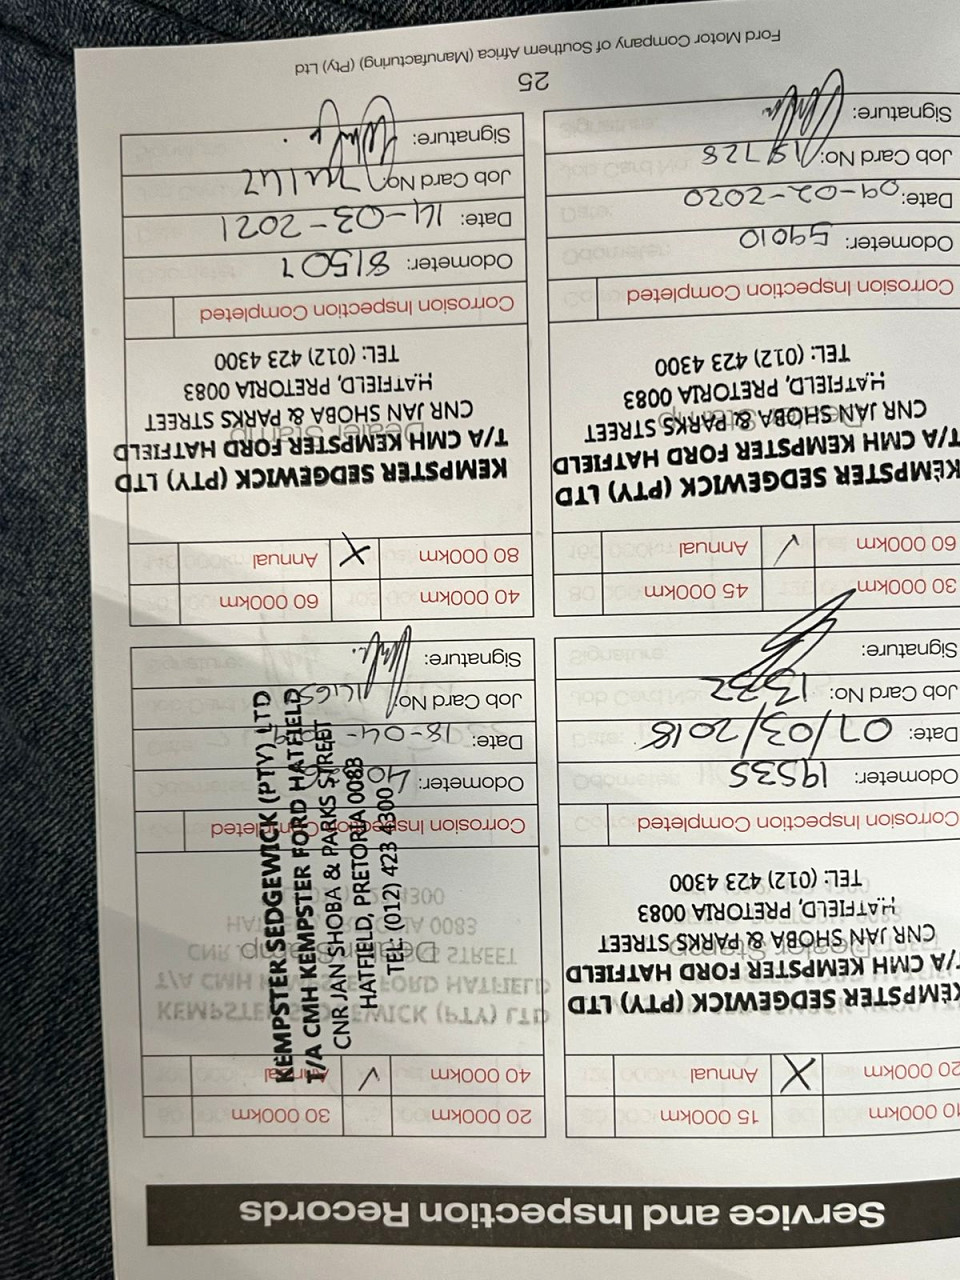 Service and Inspection Records
10 000km
15 000km
20 000km
X
Annual
KEMPSTER SEDGEWICK (PTY) LTD
T/A CMH KEMPSTER FORD HATFIELD
CNR JAN SHOBA & PARKS STREET
HATFIELD, PRETORIA 0083
TEL: (012) 423 4300
Corrosion Inspection Completed
Odometer: 19535
Date: 07/03/2018
Job Card No:
Signature:
20 000km
30 000km
40 000km
✓
Annual
Dealer Stamp
KEMPSTER SEDGEWICK (PTY) LTD
T/A CMH KEMPSTER FORD HATFIELD
CNR JAN SHOBA & PARKS STREET
HATFIELD, PRETORIA 0083
TEL: (012) 423 4300
Corrosion Inspection Completed
Odometer:
Date: 18-04-
Job Card No:
Signature:
30 000km
45 000km
60 000km
✓
Annual
Dealer Stamp
KEMPSTER SEDGEWICK (PTY) LTD
T/A CMH KEMPSTER FORD HATFIELD
CNR JAN SHOBA & PARKS STREET
HATFIELD, PRETORIA 0083
TEL: (012) 423 4300
Corrosion Inspection Completed
Odometer: 59010
Date: 09-02-2020
Job Card No: 19728
Signature:
40 000km
60 000km
80 000km
X
Annual
Dealer Stamp
KEMPSTER SEDGEWICK (PTY) LTD
T/A CMH KEMPSTER FORD HATFIELD
CNR JAN SHOBA & PARKS STREET
HATFIELD, PRETORIA 0083
TEL: (012) 423 4300
Corrosion Inspection Completed
Odometer: 81507
Date: 14-03-2021
Job Card No:
Signature:
25
Ford Motor Company of Southern Africa (Manufacturing) (Pty) Ltd